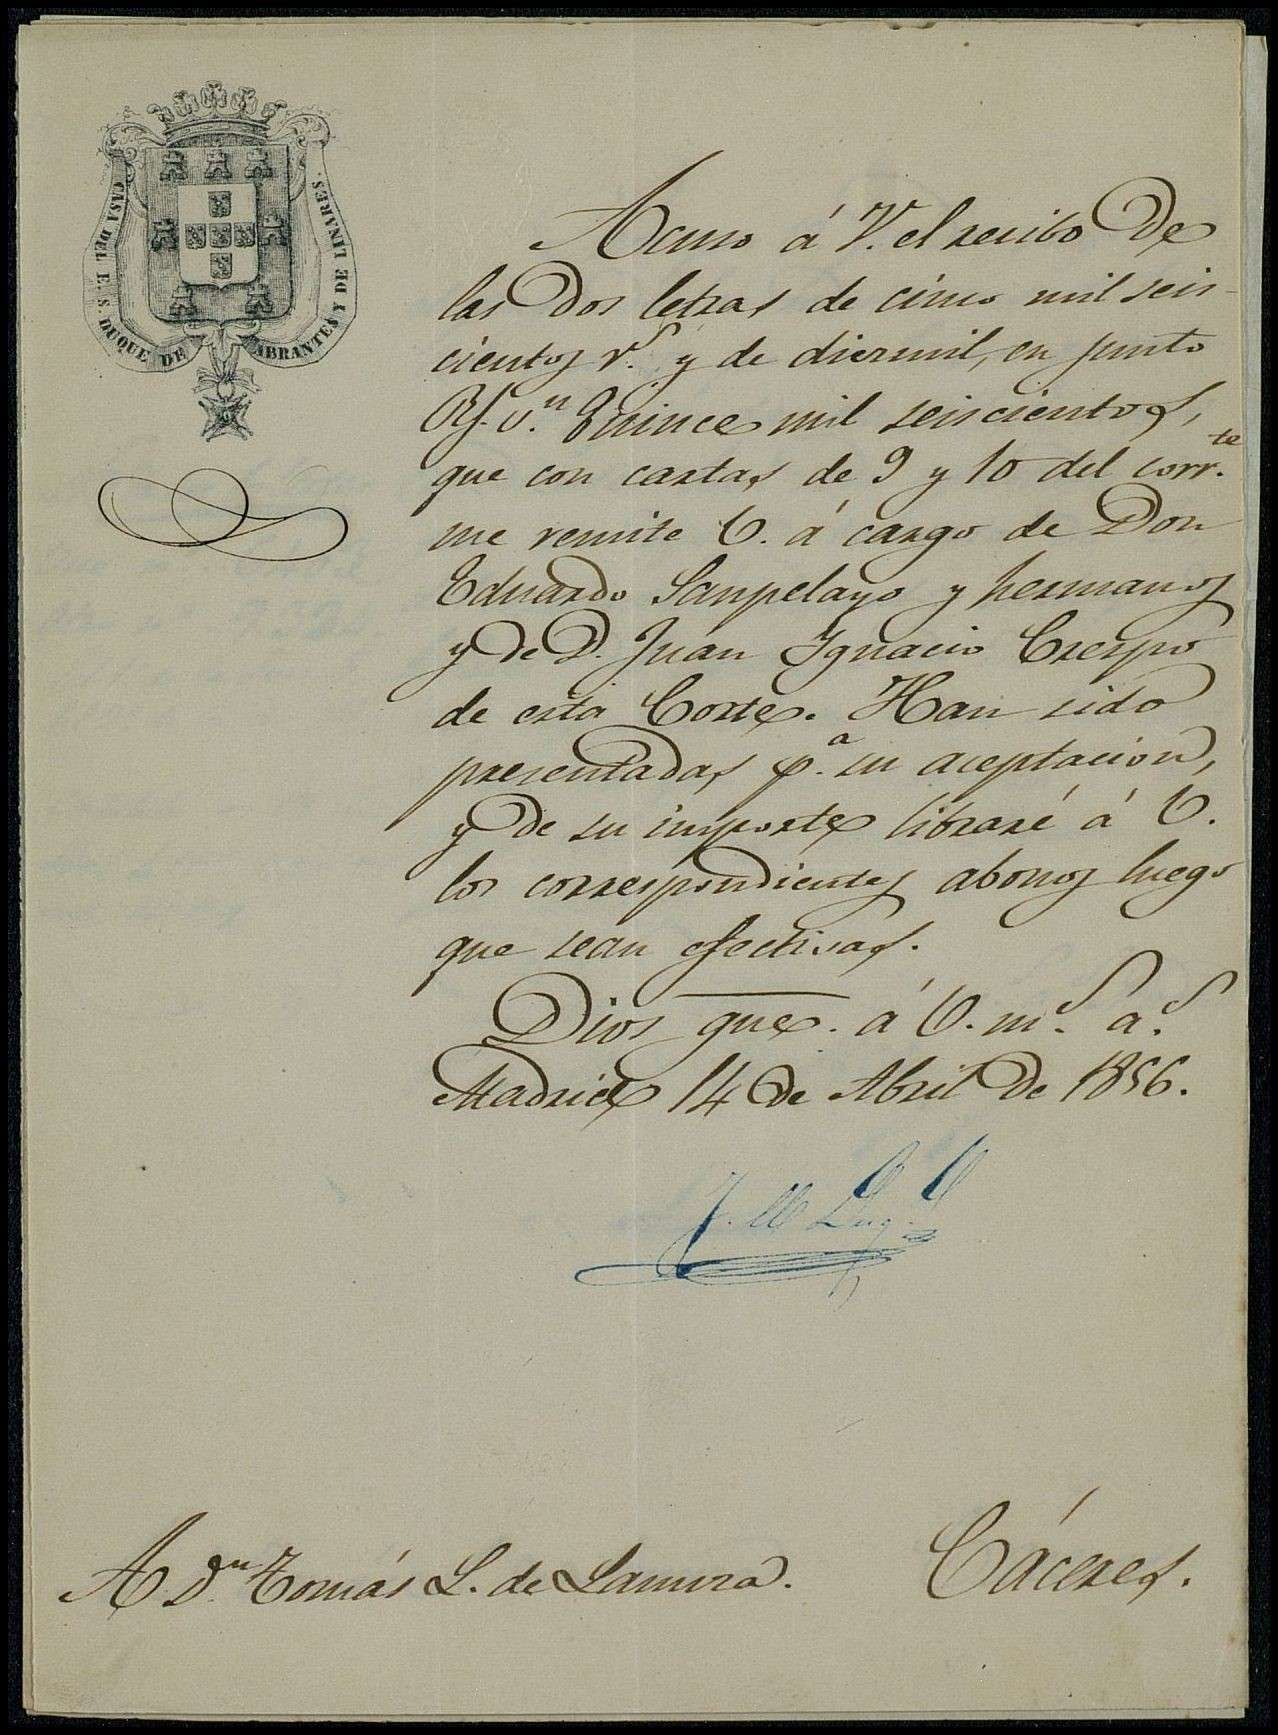 CASA DEL E. S. DUQUE DE ABRANTES Y DE LINARES.
Acuso á V. el recibo de
las dos letras de cinco mil seis-
cientos r.s y de diezmil, en junto
Rs. v.n Quince mil seiscientos,
que con cartas de 9 y 10 del corr.te
me remite V. á cargo de Don
Eduardo Sanpelayo y hermanos
y de D. Juan Ignacio Crespo
de esta Corte. Han sido
presentadas p.a su aceptacion,
y de su importe libraré á V.
los correspondientes abonos luego
que sean efectivas.
Dios gue. á V. m.s a.s
Madrid 14 de Abril de 1856.
A D.n Tomás L. de Lamora.
Cáceres.